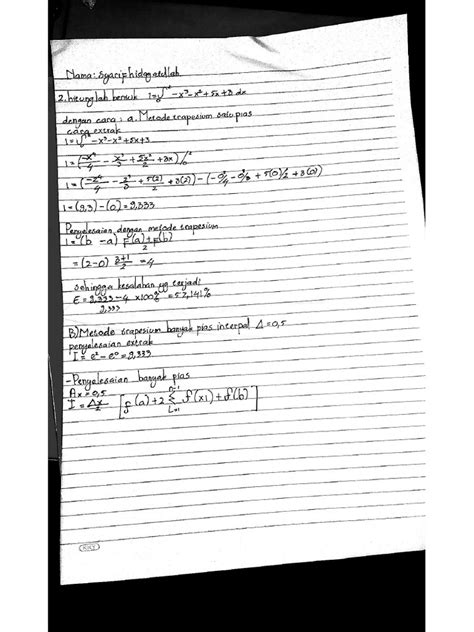 Nama: Syarif hidayatullah.
2. hitunglah bentuk I=∫₀² -x³-x²+5x+3 dx
dengan cara : a. Metode trapesium satu pias
cara extrak
I=∫₀² -x³-x²+5x+3
I=(-x⁴/4 - x³/3 + 5x²/2 + 3x)/₀²
I=(-2⁴/4 - 2³/3 + 5(2)/2 + 3(2)) - (-0/4 - 0/3 + 5(0)/2 + 3(0))
I=(2,3)-(0)=2,333
Penyelesaian dengan metode trapesium
I=(b-a) f(a)+f(b)/2
=(2-0) 3+1/2 =4
sehingga kesalahan yg terjadi
E=2,333-4/2,333 x100%=57,141%
B) Metode trapesium banyak pias interpal Δ=0,5
penyelesaian extrak
I=e²-e⁰=2,333
-Penyelesaian banyak pias
Ax=0,5
I=Δx/2 [f(a)+2 Σ f(xi)+f(b)]
KKY